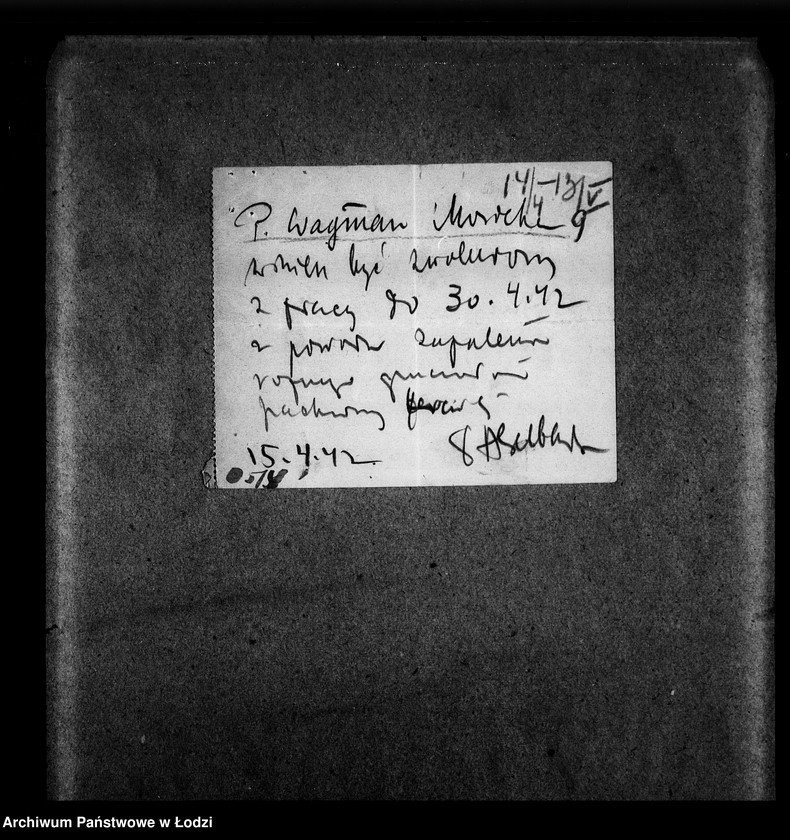 14/4 - 13/V
P. Wagman Moszek
winien być zwolniony
z pracy do 30.4.42
z powodu zapalenia
ropnego gruczołów
pachowy
15.4.42.
Archiwum Państwowe w Łodzi